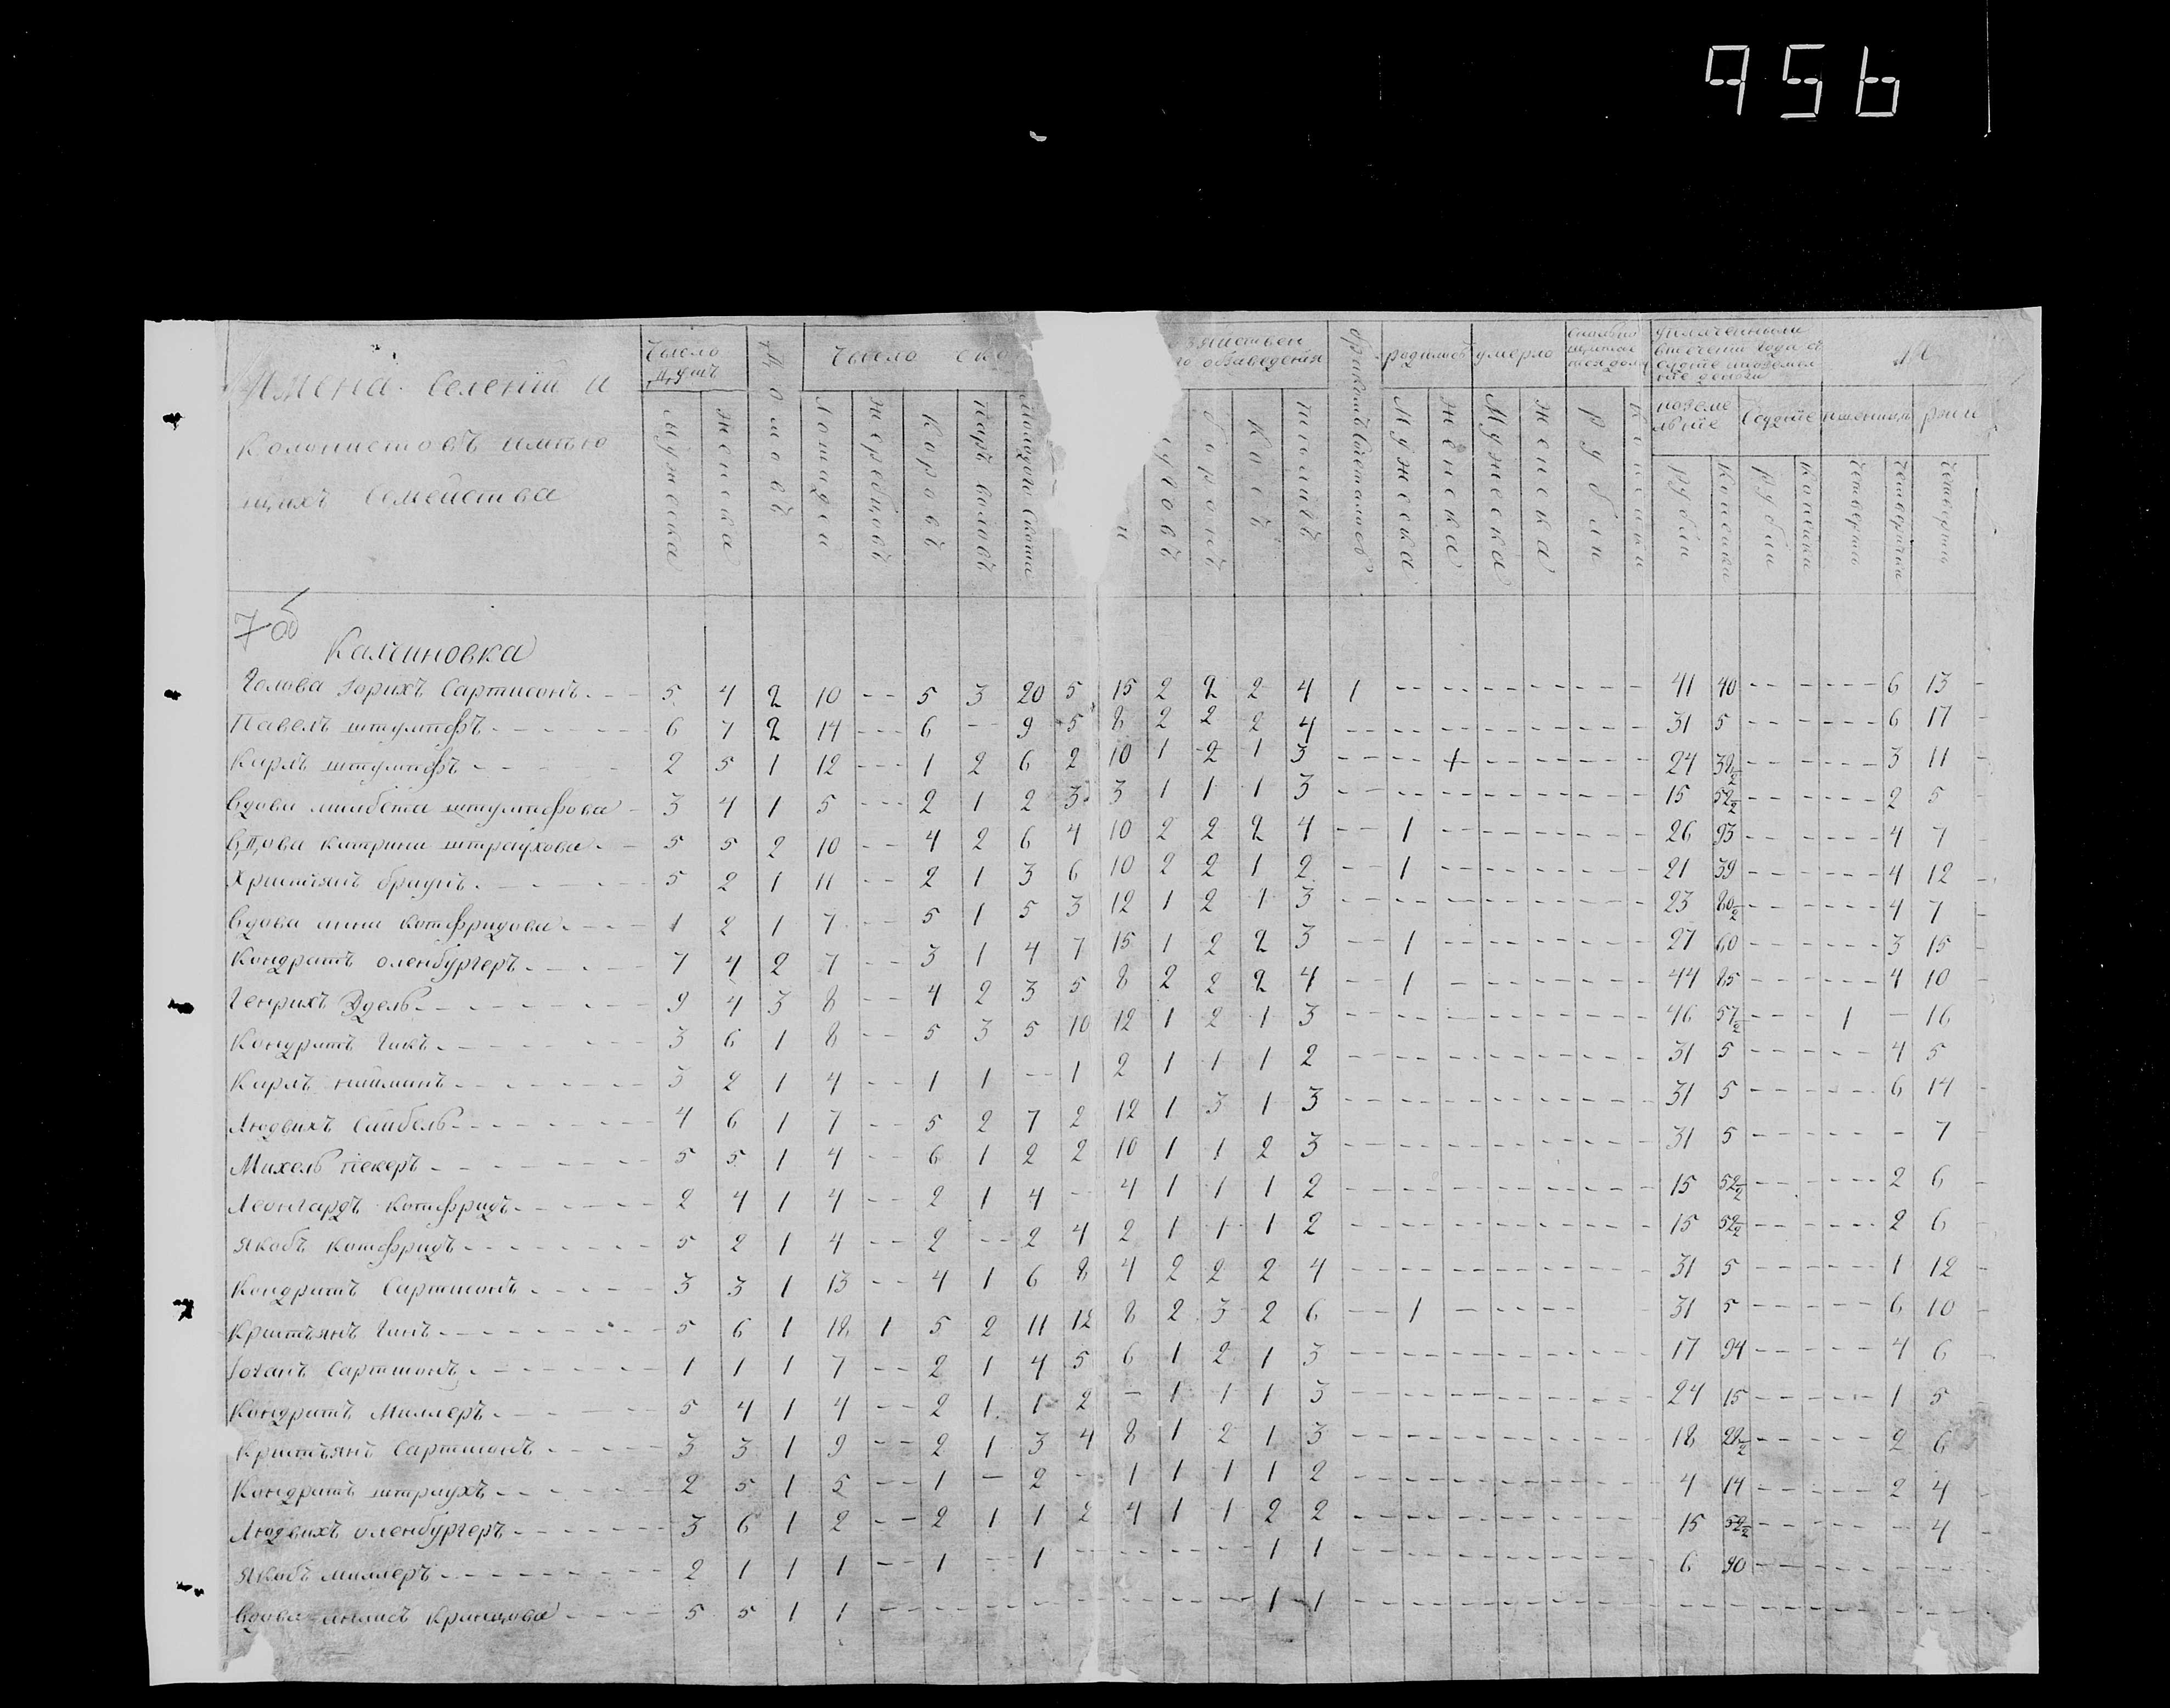 956
Имена Селенiи и
Колонистовъ имѣю
щихъ Семейства
Число Душъ
мужеска
женска
Домовъ
Число ско
Лошадеи
жеребцовъ
Коровъ
паръ воловъ
Молодаго Скота
зяиствен
го обзаведенiя
боронъ
Косъ
родилось
Мужеска
женска
умерло
Мужеска
женска
рубли
Копеики
поземе
льные
рубли
Копеики
рубли
Копеики
пшеницы
четверти
четверики
ржи
четверти
7об
Калчиновка
Голова Iорихъ Сартисонъ 5 4 2 10 -- 5 3 20 5 15 2 2 2 4 1 -- -- -- -- -- -- 41 40 -- -- -- 6 13
Павелъ штумпфъ 6 7 2 14 -- 6 -- 9 5 8 2 2 2 4 -- -- -- -- -- -- 31 5 -- -- -- 6 17
Карлъ штумпфъ 2 5 1 12 -- 1 2 6 2 10 1 2 1 3 -- -- 1 -- -- -- -- 24 -- -- -- 3 11
вдова штумпфова 3 4 1 5 -- 2 1 2 3 3 1 1 1 3 -- -- -- -- -- -- 15 52½ -- -- -- 2 5
вдова катрина штраухова 5 5 2 10 -- 4 2 6 4 10 2 2 2 4 -- 1 -- -- -- -- 26 93 -- -- -- 4 7
Христьянъ браунъ 5 2 1 11 -- 2 1 3 6 10 2 2 1 2 -- 1 -- -- -- -- 21 39 -- -- -- 4 12
вдова анна котфридова 1 2 1 7 -- 5 1 5 3 12 1 2 1 3 -- -- -- -- -- -- 23 80½ -- -- -- 4 7
Кондратъ оленбургеръ 7 4 2 7 -- 3 1 4 7 15 1 2 2 3 -- 1 -- -- -- -- 27 60 -- -- -- 3 15
Генрихъ Эдель 9 4 3 8 -- 4 2 3 5 8 2 2 2 4 -- 1 -- -- -- -- 44 85 -- -- -- 4 10
Кондратъ Гакъ 3 6 1 8 -- 5 3 5 10 12 1 2 1 3 -- -- -- -- -- -- 46 57½ -- -- 1 -- 16
Карлъ найманъ 3 2 1 4 -- 1 1 -- 1 2 1 1 1 2 -- -- -- -- -- -- 31 5 -- -- -- 4 5
Людвихъ Сайбель 4 6 1 7 -- 5 2 7 2 12 1 3 1 3 -- -- -- -- -- -- 31 5 -- -- -- 6 14
Михель пекеръ 5 5 1 4 -- 6 1 2 2 10 1 1 2 3 -- -- -- -- -- -- 31 5 -- -- -- -- 7
Леонгардъ котфридъ 2 4 1 4 -- 2 1 4 -- 4 1 1 1 2 -- -- -- -- -- -- 15 52½ -- -- -- 2 6
Якобъ котфридъ 5 2 1 4 -- 2 -- 2 4 2 1 1 1 2 -- -- -- -- -- -- 15 52½ -- -- -- 2 6
Кондратъ Сартисонъ 3 3 1 13 -- 4 1 6 8 4 2 2 2 4 -- -- -- -- -- -- 31 5 -- -- -- 1 12
Кристьянъ Гинъ 5 6 1 18 1 5 2 11 12 8 2 3 2 6 -- 1 -- -- -- 31 5 -- -- -- 6 10
Iоганъ Сартисонъ 1 1 1 7 -- 2 1 4 5 6 1 2 1 3 -- -- -- -- -- -- 17 94 -- -- -- 4 6
Кондратъ Миллеръ 5 4 1 4 -- 2 1 1 2 -- 1 1 1 3 -- -- -- -- -- -- 24 15 -- -- -- 1 5
Кристьянъ Сартисонъ 3 3 1 9 -- 2 1 3 4 8 1 2 1 3 -- -- -- -- -- -- 18 -- -- -- 2 6
Кондратъ штраухъ 2 5 1 5 -- 1 -- 2 -- 1 1 1 1 2 -- -- -- -- -- -- 4 14 -- -- -- 2 4
Людвихъ оленбургеръ 3 6 1 2 -- 2 1 1 2 4 1 1 2 2 -- -- -- -- -- -- 15 52½ -- -- -- -- 4
Якобъ миллеръ 2 1 1 1 -- 1 -- 1 -- -- -- -- 1 1 -- -- -- -- -- -- 6 90 -- -- -- -- --
вдова анлисъ Кранцова 5 5 1 1 -- -- -- -- -- -- -- -- 1 1 -- -- -- -- -- -- -- -- -- -- -- -- --